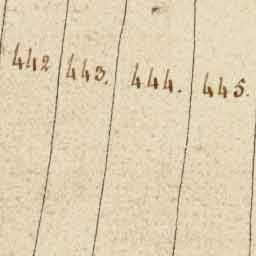 442 443. 444. 445.